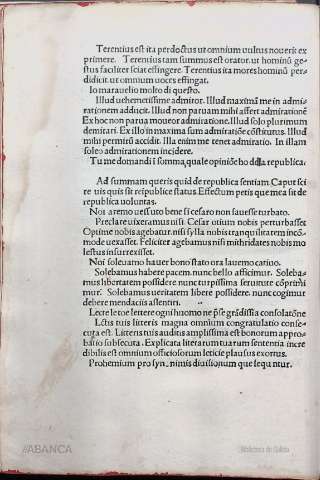 Terentius est ita perdoctus ut omnium vultus noverit ex
primere. Terentium tam summus est orator. ut hominũ ge-
stus faciliter sciat effingere. Terentius ita mores hominũ per-
didicit ut omnium voces effingat.
Io maravelio molto di questo.
Illud uehemetissime admiror. Illud maximã me in admi-
rationem adducit. Illud non paruam mihi affert admirationẽ
Ex hoc non parua moueor admiratione. Illud solo plurimum
demirari. Ex illo in maxima sum admiratiõe cõstitutus. Illud
mihi permitrũ accidit. Illa enim me tenet admiratio. In illam
soleo admirationem incidere.
Tu me domandi ĩ summa, quale opiniõe ho della republica.
Ad summam queris quid de republica sentiam. Caput sci
re uis quis sit reipublice status. Effectum petis que mea sit de
republica uoluntas.
Noi aremo uessuto bene si cesaro non fauesse turbato.
Preclare uixeramus nisi. Cesar otium nobis perturbasset
Optime nobis agebatur. nisi sylla nobis tranquilitatem incõ-
mode uexasset. Feliciter agebamus nisi mithridates nobis mo
lestus insurrexisset.
Noi soleuamo hauer bono stato ora lauemo catiuo.
Solebamus habere pacem. nunc bello afficimur. Soleba-
mus libertatem possidere nunc turpissima seruitute cõprimi
mur. Solebamus ueritatem libere possidere. nunc cogimur
debere mendaciis assentiri.
Le cre le toe lettere ogni huomo ne pẽse grãdissia consolatõne
Lectis tuis litteris magna omnium congratulatio conse-
cuta est. Litteris tuis auditis amplissima est bonorum appro-
batio subsecuta. Explicata litterarum tuarum sententia incre
dibilis est omnium officiosorum leticie plausus exortus.
Prohemium pro syn. nimis diuisionum que sequntur.
ABANCA
Biblioteca de Galicia